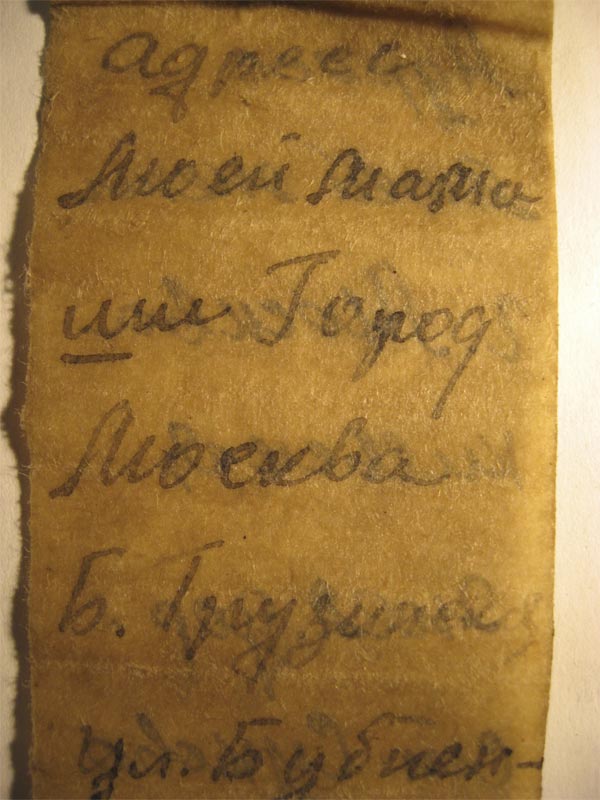 адрес
Моей мама
ши Город
Москва
Б. Грузинск
ул. Бубнен-